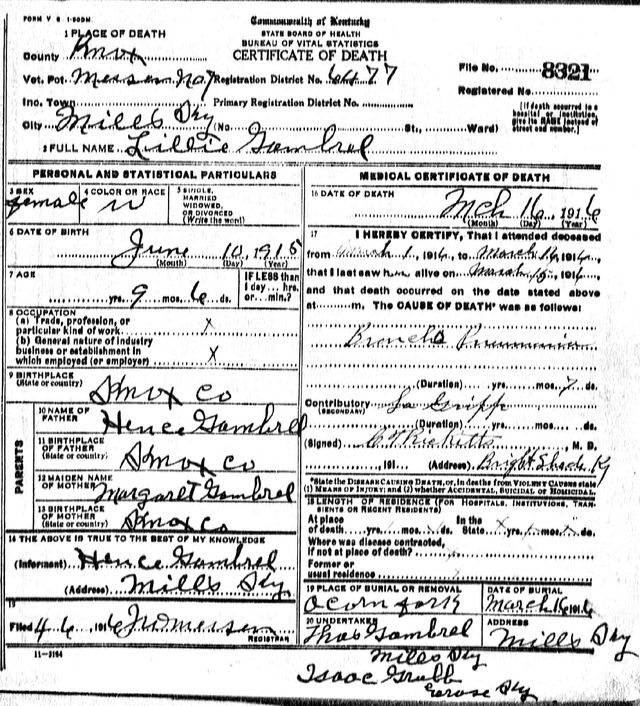 FORM V S 1-500M.
Commonwealth of Kentucky
STATE BOARD OF HEALTH
BUREAU OF VITAL STATISTICS
CERTIFICATE OF DEATH
1 PLACE OF DEATH
County Knox
Vet. Pct. No 7 Registration District No. 6477
File No. 8321
Registered No.
Inc. Town Primary Registration District No.
(If death occurred in a hospital or institution, give its NAME instead of street and number.)
City Mills Ky (No. St., Ward)
2 FULL NAME Lillie Gambrel
PERSONAL AND STATISTICAL PARTICULARS
3 SEX female
4 COLOR OR RACE W
5 SINGLE, MARRIED WIDOWED, OR DIVORCED (Write the word)
6 DATE OF BIRTH
June 10, 1915
(Month) (Day) (Year)
7 AGE
yrs. 9 mos. 6 ds.
IF LESS than 1 day... hrs. or... min.?
8 OCCUPATION
(a) Trade, profession, or particular kind of work x
(b) General nature of industry business or establishment in which employed (or employer) x
9 BIRTHPLACE (State or country) Knox Co
PARENTS
10 NAME OF FATHER Hence Gambrel
11 BIRTHPLACE OF FATHER (State or country) Knox Co
12 MAIDEN NAME OF MOTHER Margaret Gambrel
13 BIRTHPLACE OF MOTHER (State or country) Knox Co
14 THE ABOVE IS TRUE TO THE BEST OF MY KNOWLEDGE
(Informant) Hence Gambrel
(Address) Mills Ky
15
Filed 4-6, 1916
REGISTRAR
11-3184
MEDICAL CERTIFICATE OF DEATH
16 DATE OF DEATH
Mch 16, 1916
(Month) (Day) (Year)
17 I HEREBY CERTIFY, That I attended deceased
from March 1, 1916, to March 16, 1916,
that I last saw h alive on March 15, 1916
and that death occurred on the date stated above
at m. The CAUSE OF DEATH* was as follows:
Broncho Pneumonia
(Duration) yrs. mos. 7 ds.
Contributory La Gripp
(SECONDARY)
(Duration) yrs. mos. ds.
(Signed) Ricketts, M. D.
, 191 (Address) Bright Shade Ky
*State the DISEASE CAUSING DEATH, or, in deaths from VIOLENT CAUSES state (1) MEANS OF INJURY; and (2) whether ACCIDENTAL, SUICIDAL or HOMICIDAL.
18 LENGTH OF RESIDENCE (FOR HOSPITALS, INSTITUTIONS, TRANSIENTS OR RECENT RESIDENTS)
At place of death yrs. mos. ds. In the State yrs. mos. ds.
Where was disease contracted, if not at place of death?
Former or usual residence
19 PLACE OF BURIAL OR REMOVAL Acorn fork
DATE OF BURIAL March 16 1916
20 UNDERTAKER Thos Gambrel
ADDRESS Mills Ky
Mills Ky
Isaac Grubb
Ky